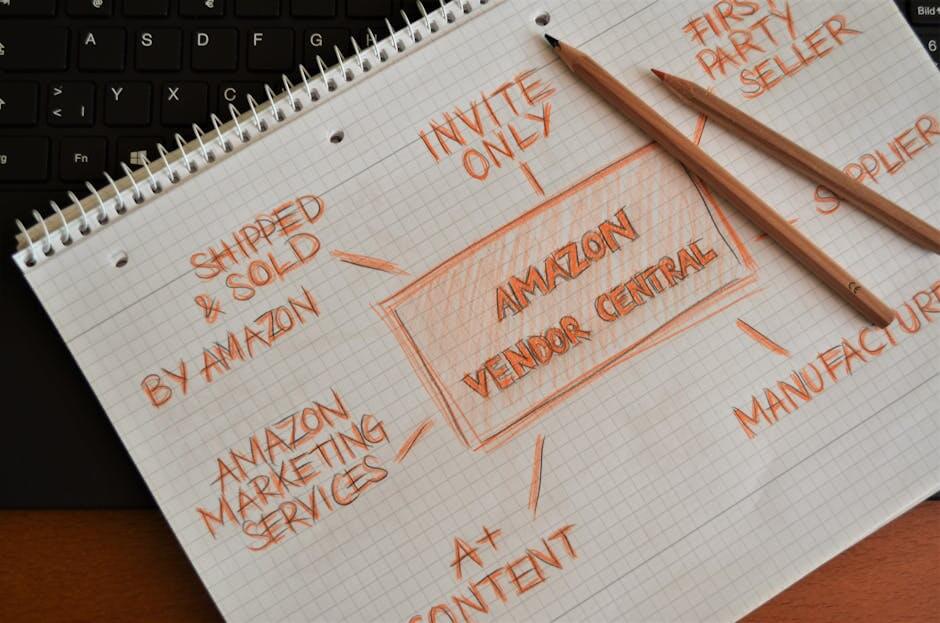 Bild
6
A S D F G H
> < | Y X C
Fn
FIRST
PARTY
SELLER
INVITE
ONLY
SUPPLIER
SHIPPED
& SOLD
BY AMAZON
AMAZON
VENDOR CENTRAL
MANUFACTURE
AMAZON
MARKETING
SERVICES
A+
CONTENT